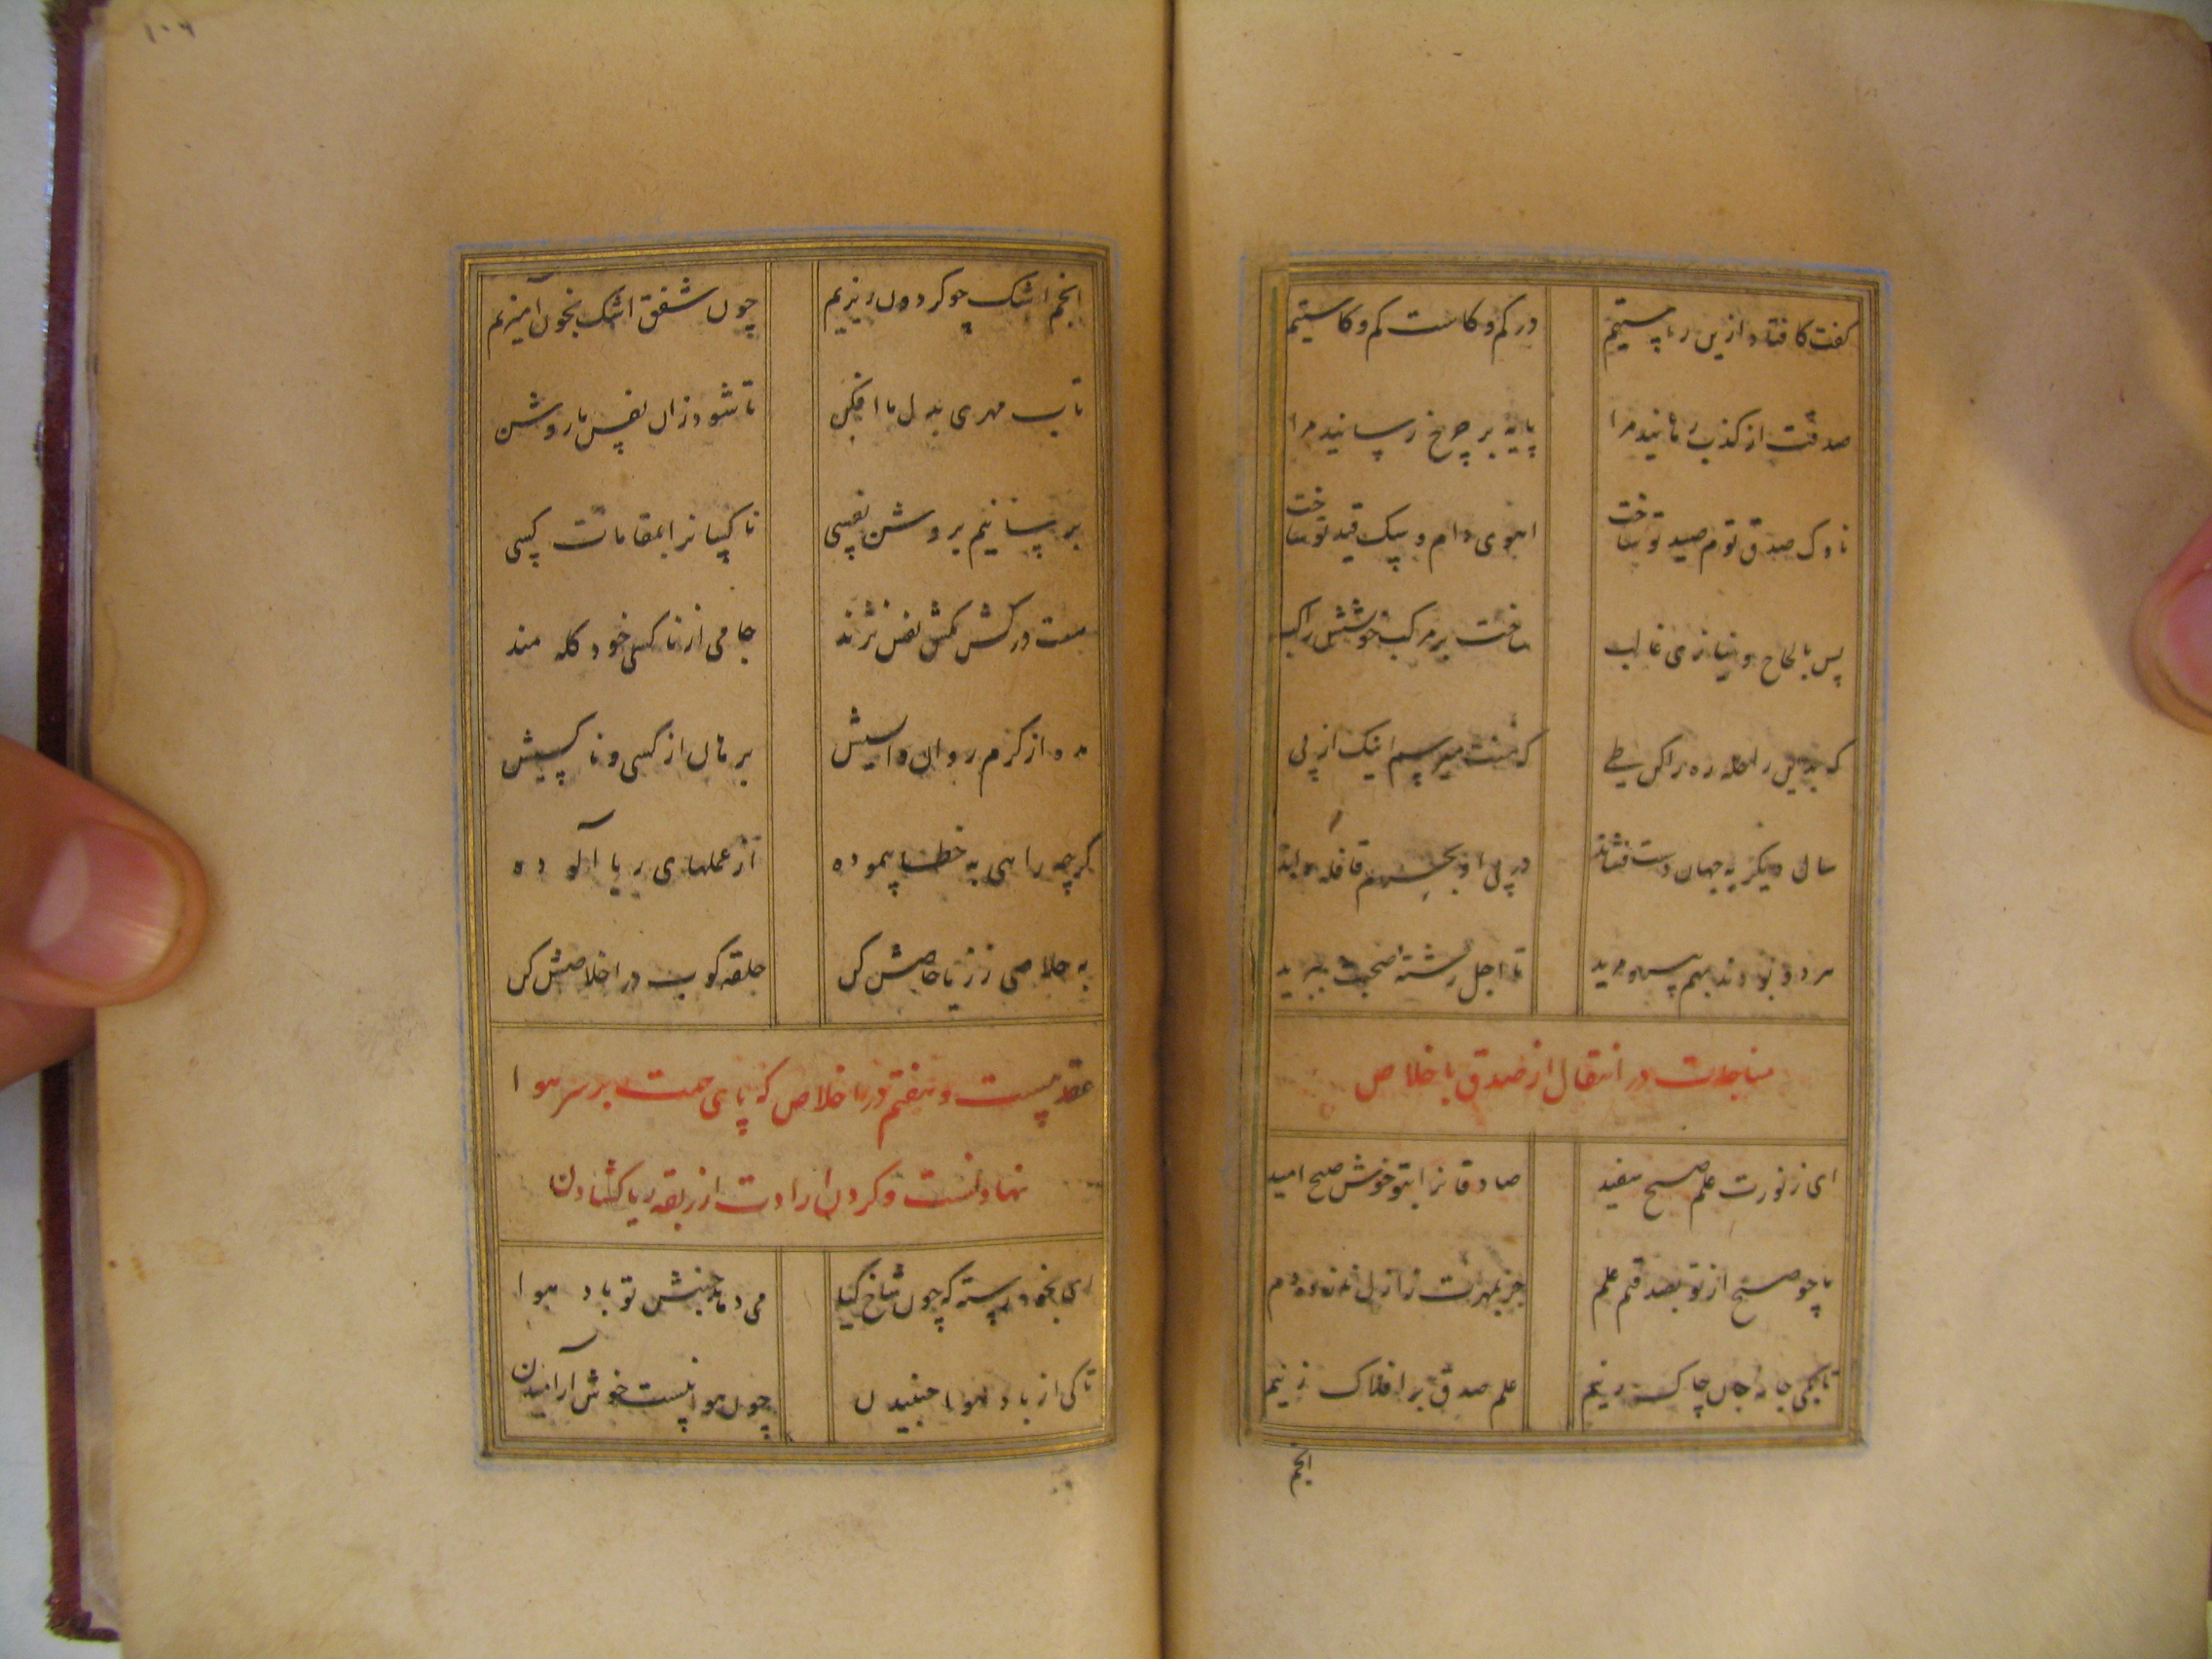 گفت کافتاد ازین راستیم در کم و کاست کم و کاستیم
صدقت از کذب رهانید مرا پایه بر چرخ رسانید مرا
ناوک صدق توم صید تو ساخت اهوی دام و سگ قید تو ساخت
پس بالحاح و نیازی غالب ساخت بر مرکب خویشش راکب
که بدین راحله ره را کن طی که منت میرسم اینک از پی
سال دیگر به جهان دست فشاند در پی او بحرم قافله راند
هر دو بودند بهم تا اجل رشته صحبت ببرید
مناجات در انتقال از صدق با خلاص
ای ز نورت علم صبح سفید صادقانرا بتو خوش صبح امید
ما چو صبح از تو بصدقیم علم جز بمهرت ز ازل نازده دم
تا بکی جامه جان چاک زنیم علم صدق بر افلاک زنیم
انجم
۱۰۶
انجم اشک چو گردون ریزیم چون شفق اشک بخون آمیزیم
تاب مهری به دل ما افکن تا شود زان نفس ما روشن
برسانیم بروشن نفسی ناکسانرا بمقامات کسی
هست در کش مکش نفس نژند جامی از ناکسی خود گله مند
ده از کرم روان واسیش برهان از کسی و ناکسیش
گرچه راهی به خطا پیموده از عملهای ریا آلوده
به خلاصی ز ریا خاصش کن حلقه کوب در اخلاصش کن
عقد بیست و هفتم در اخلاص که پای همت بر سر هوا
نهادنست و گردن ارادت از ربقه ریا کشادن
ای بخود رسته که چون شاخ گیا می دهد جنبش تو باد هوا
تا کی از باد هوا جنبیدن چون هوا نیست خوش آرامیدن